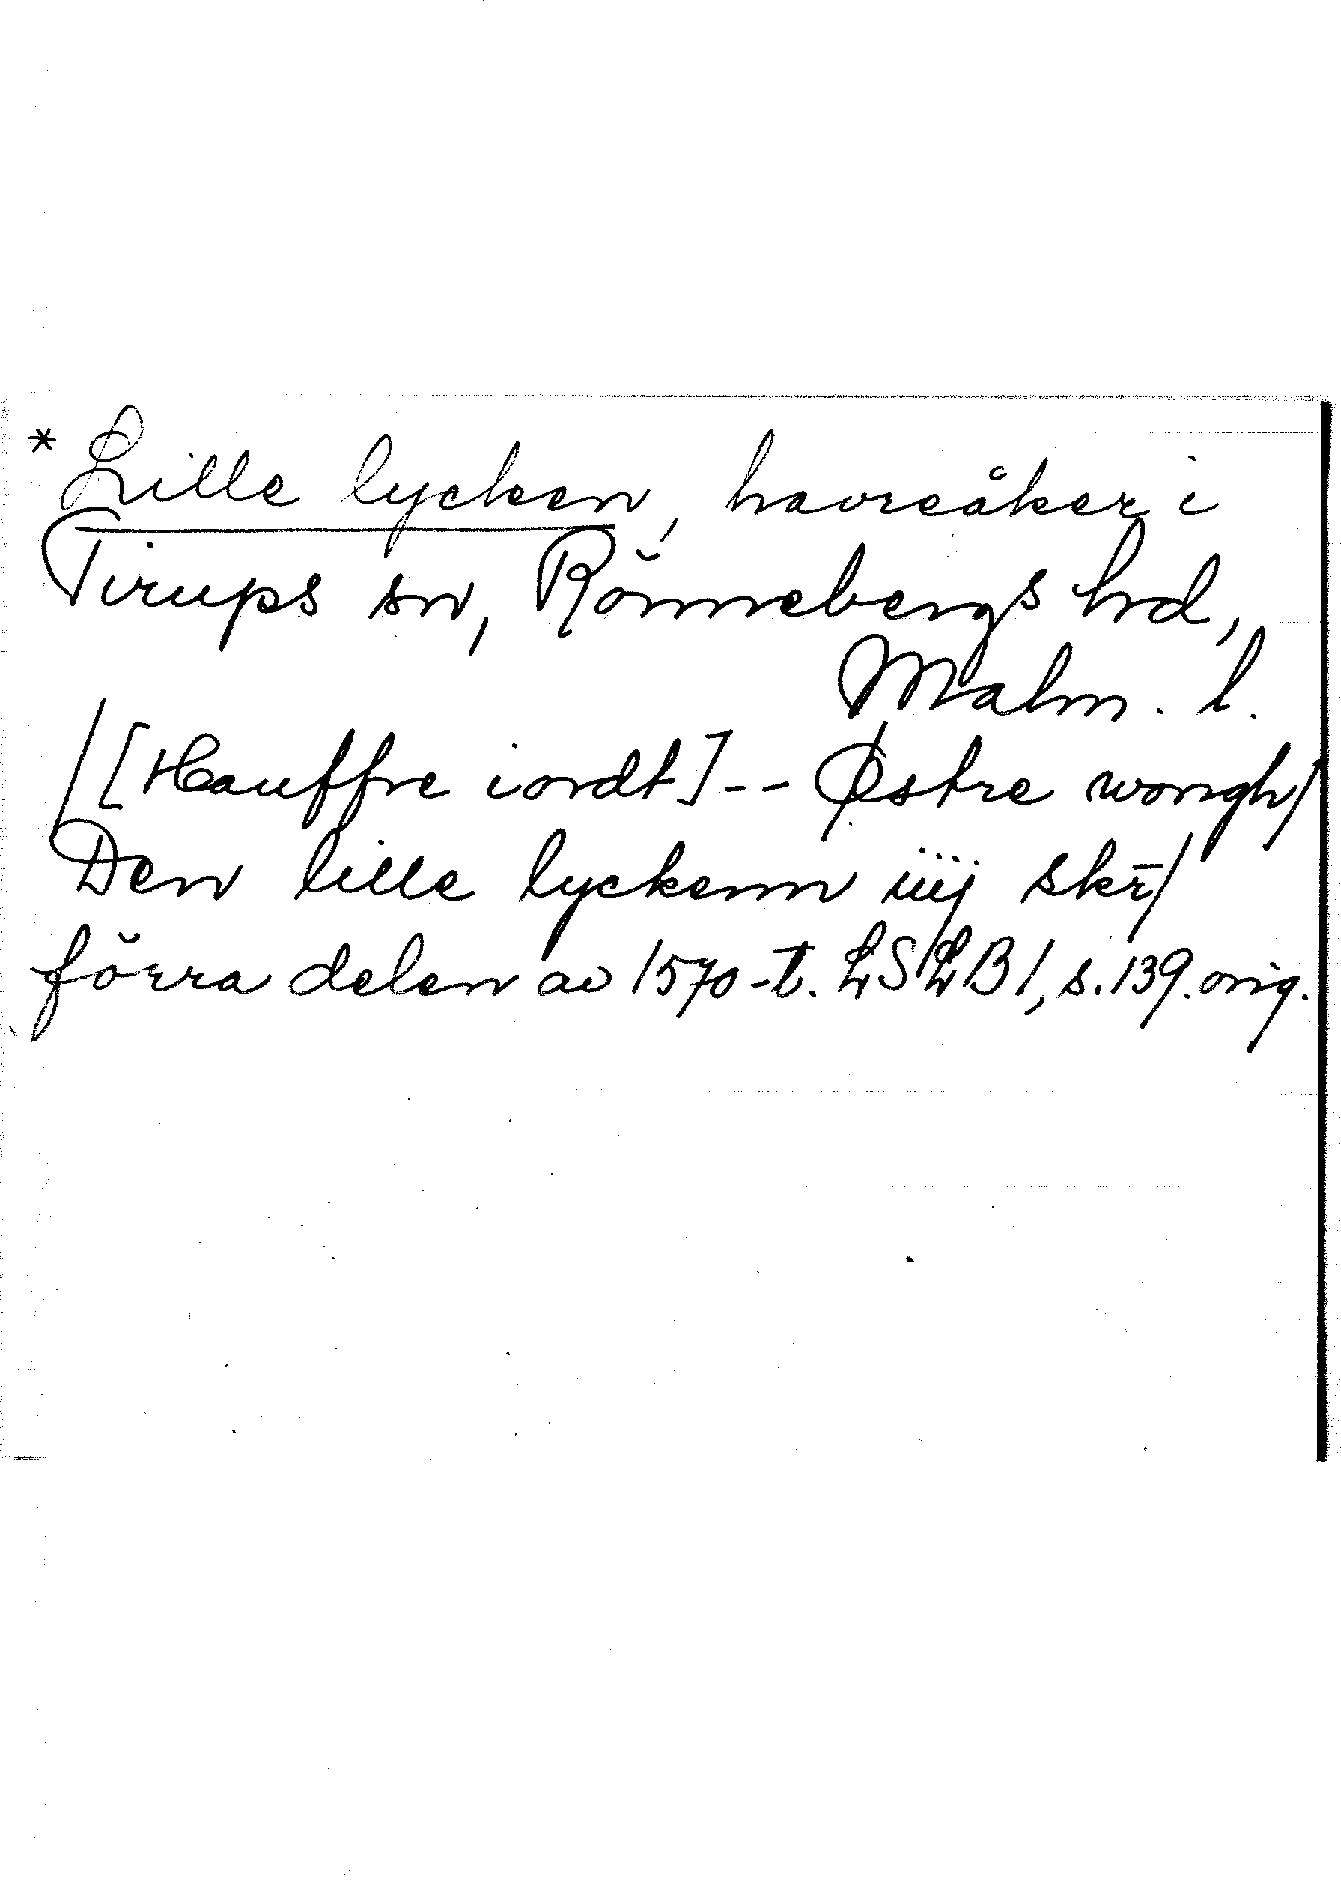 * Lille lycken, havreåker i
Tirups sn, Rönnebergs hrd,
Malm. l.
/[Hauffre iordt] -- Østre wongh/
Den lille lyckenn iiij skr̄/
förra delen av 1570-t. LSLB 1, s. 139. orig.